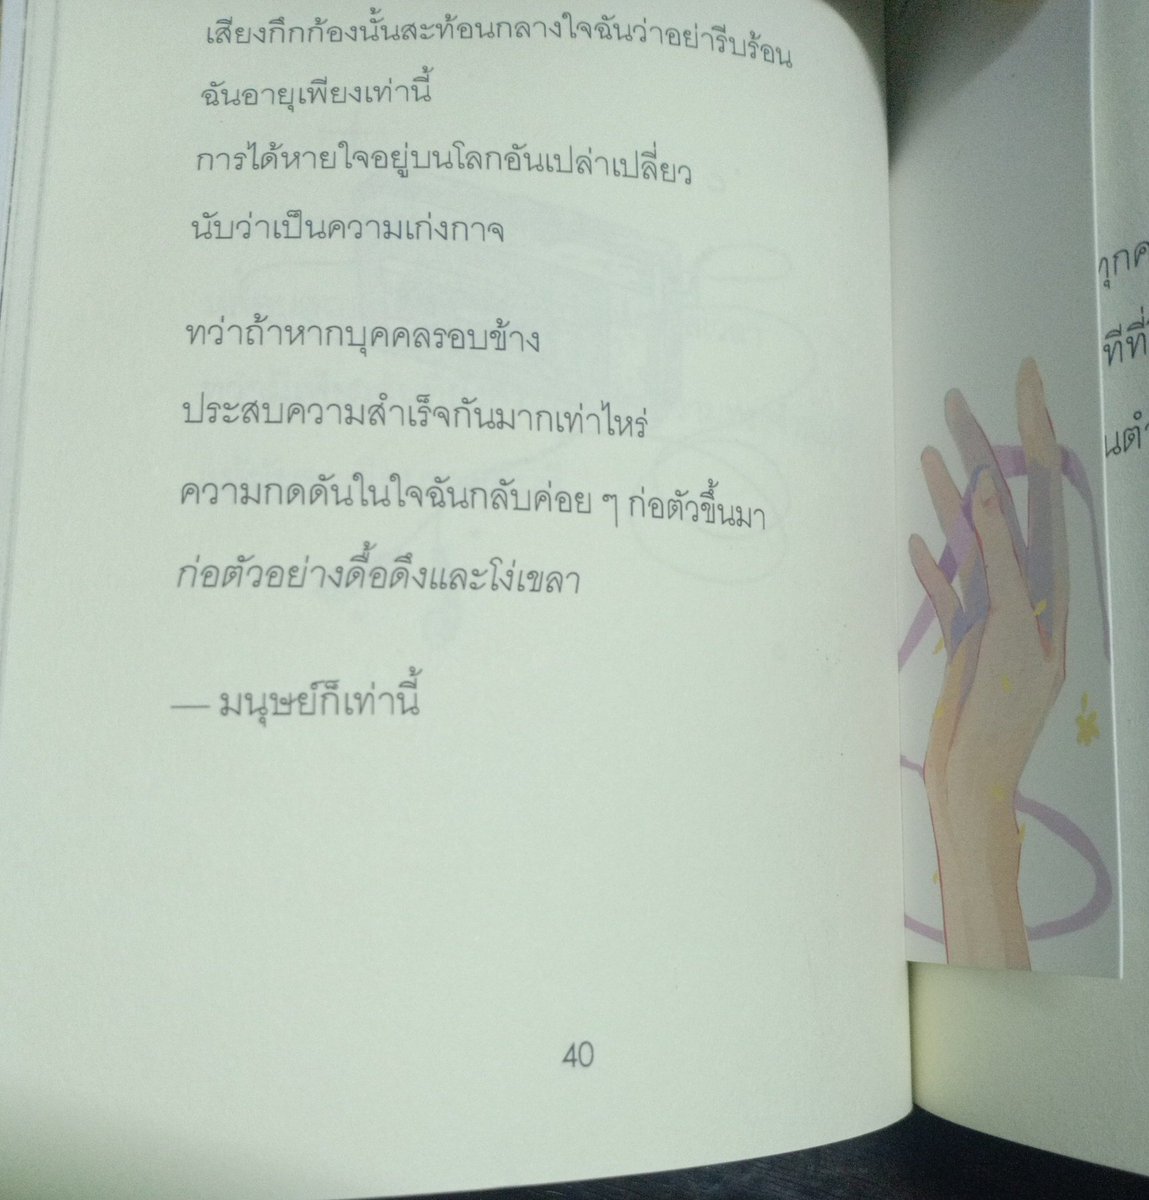 เสียงกึกก้องนั้นสะท้อนกลางใจฉันว่าอย่ารีบร้อน
ฉันอายุเพียงเท่านี้
การได้หายใจอยู่บนโลกอันเปล่าเปลี่ยว
นับว่าเป็นความเก่งกาจ
ทว่าถ้าหากบุคคลรอบข้าง
ประสบความสำเร็จกันมากเท่าไหร่
ความกดดันในใจฉันกลับค่อย ๆ ก่อตัวขึ้นมา
ก่อตัวอย่างดื้อดึงและโง่เขลา
— มนุษย์ก็เท่านี้
40